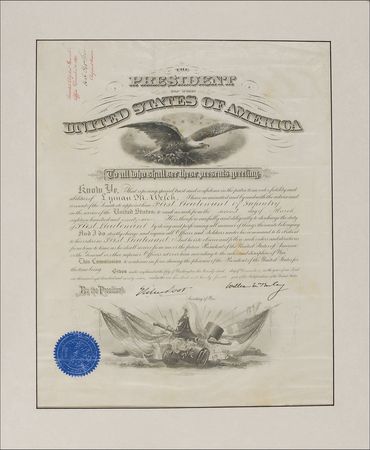 THE
PRESIDENT
OF THE
UNITED STATES OF AMERICA
To all who shall see these presents greeting:
Know Ye, That reposing special trust and confidence in the patriotism, valor, fidelity and
abilities of Lyman M. Welch, I have nominated and by and with the advice and
consent of the Senate do appoint him First Lieutenant of Infantry
in the service of the United States: to rank as such from the second day of March
eighteen hundred and ninety He is therefore carefully and diligently to discharge the duty
of First Lieutenant by doing and performing all manner of things thereunto belonging.
And I do strictly charge and require all Officers and Soldiers under his command to be obedient
to his orders as First Lieutenant And he is to observe and follow such orders and directions
from time to time as he shall receive from me or the future President of the United States of America
or the General or other superior Officers set over him according to the rules and discipline of War.
This Commission to continue in force during the pleasure of the President of the United States for
the time being.
Given under my hand at the City of Washington this day of December in the year of our Lord
one thousand eight hundred and ninety and in the year of the Independence of the United States
By the President:
Elihu Root
William McKinley
Secretary of War.